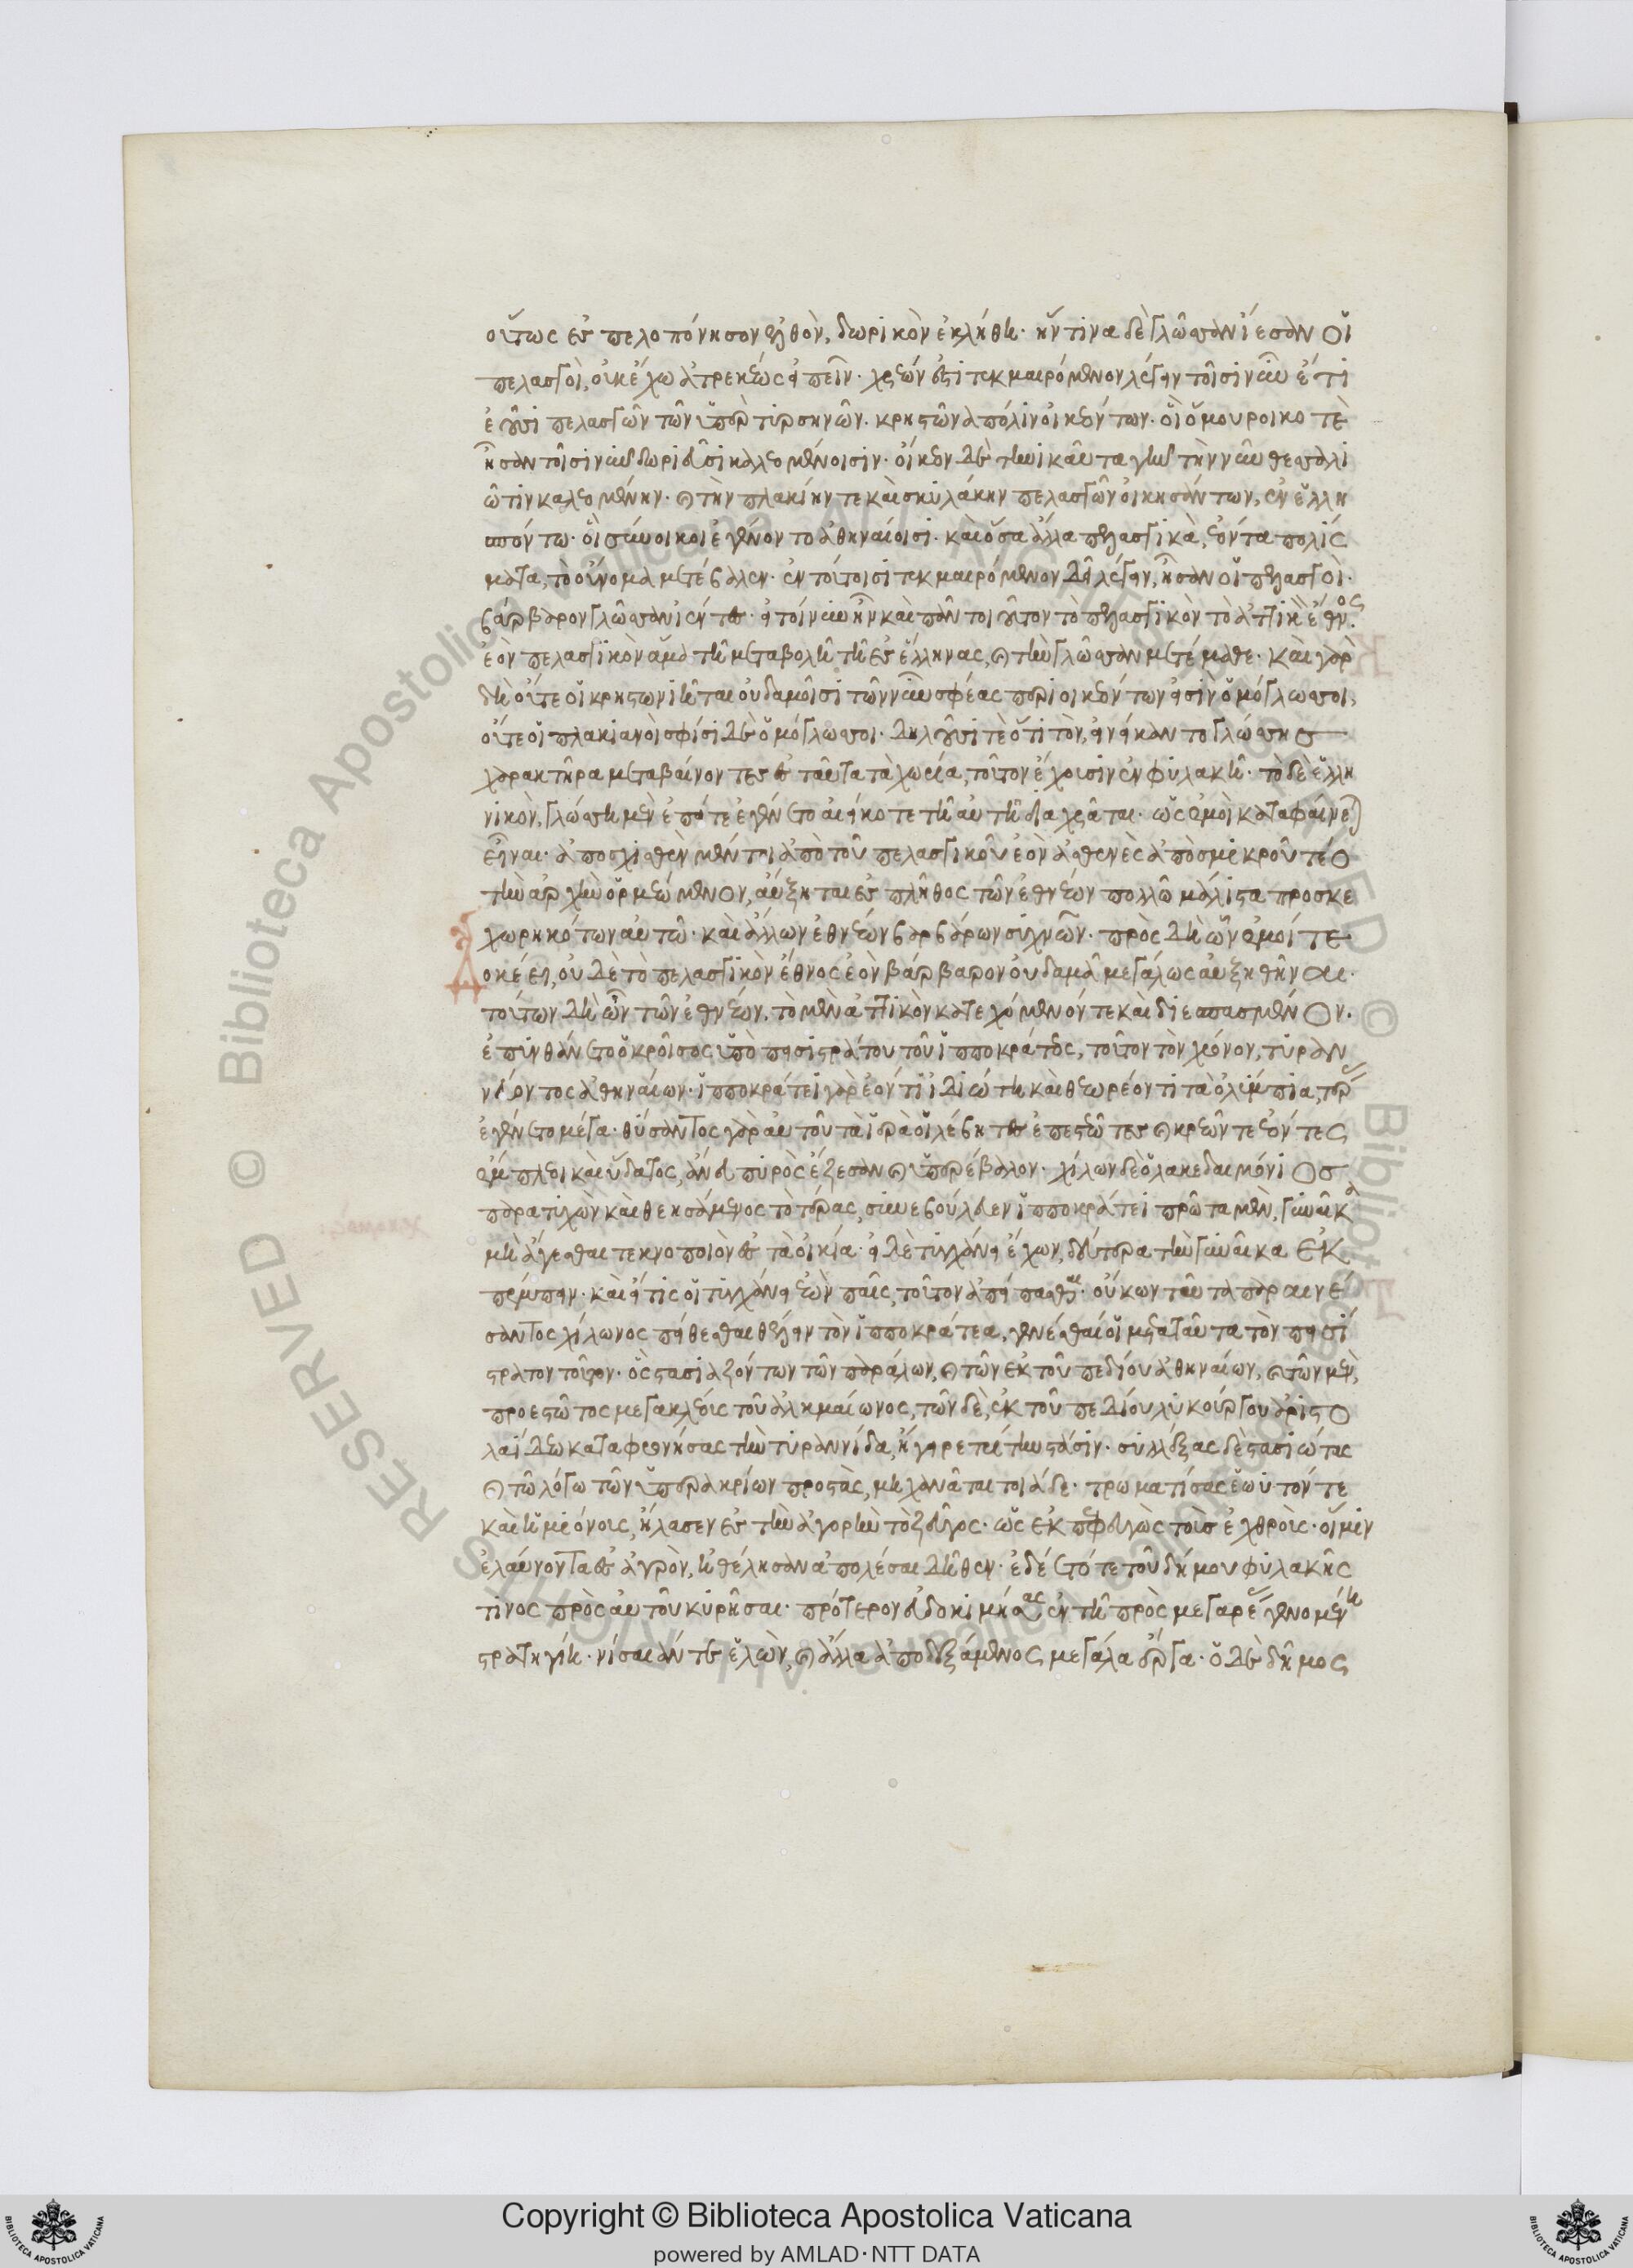 οὕτως ἐς πελοπόνησον ἐλθὸν, δωρικὸν ἐκλήθη. ἥντινα δὲ γλῶσσαν ἵεσαν οἱ
πελασγοὶ, οὐκ ἔχω ἀτρεκέως εἰπεῖν. χρεών ἐστι τεκμαιρόμενον λέγειν τοῖσι νῦν ἔτι
ἐοῦσι πελασγῶν τῶν ὑπὲρ τυρσηνῶν. κρηστῶνα πόλιν οἰκεόντων. οἳ ὅμουροι κοτὲ
ἦσαν τοῖσι νῦν δωριεῦσι καλεομένοισιν. οἴκεον δὲ τηνικαῦτα γῆν τὴν νῦν θεσσαλι
ῶτιν καλεομένην. καὶ τὴν πλακίην τε καὶ σκυλάκην πελασγῶν οἰκησάντων, ἐν ἑλλη
σπόντω. οἳ σύνοικοι ἐγένοντο ἀθηναίοισι. καὶ ὅσα ἄλλα πελασγικὰ, ἐόντα πολίς
ματα, τὸ οὔνομα μετέβαλεν. ἐν τούτοισι τεκμαιρόμενον δεῖ λέγειν, ἦσαν οἱ πελασγοὶ.
βάρβαρον γλῶσσαν ἱέντες. εἰ τοίνυν ἦν καὶ πᾶν τοιοῦτον τὸ πελασγικὸν τὸ ἀττικὸν ἔθνος.
ἐον πελασγικὸν ἅμα τῆ μεταβολῆ τῆ ἐς ἕλληνας, καὶ τὴν γλῶσσαν μετέμαθε. καὶ γὰρ
δὴ οὔτε οἱ κρηστωνιῆται οὐδαμοῖσι τῶν νῦν σφέας περιοικεόντων εἰσὶν ὁμόγλωσσοι,
οὔτε οἱ πλακιανοὶ σφίσι δὲ ὁμόγλωσσοι. δηλοῦσί τε ὅτι τὸν, ἠνείκαντο γλώσσης
χαρακτῆρα μεταβαίνοντες ἐς ταῦτα τὰ χωρία, τοῦτον ἔχουσιν ἐν φυλακῆ. τὸ δὲ ἑλλη
νικὸν, γλώσση μὲν ἐπείτε ἐγένετο αἰεί κοτε τῆ αὐτῆ διαχρᾶται. ὡς ἐμοὶ καταφαίνεται
εἶναι. ἀποσχισθὲν μέντοι ἀπὸ τοῦ πελασγικοῦ ἐὸν ἀσθενὲς ἀπὸ σμικροῦ τέο
τὴν ἀρχὴν ὁρμεώμενον, αὔξηται ἐς πλῆθος τῶν ἐθνέων πολλῶ μάλιστα προσκε
χωρηκότων αὐτῶ. καὶ ἄλλων ἐθνέων βαρβάρων συχνῶν. πρὸς δὴ ὦν ἐμοί τε
Δοκέει, οὐδὲ τὸ πελασγικὸν ἔθνος ἐὸν βάρβαρον οὐδαμᾶ μεγάλως αὐξηθῆναι.
τούτων δὴ ὦν τῶν ἐθνέων. τὸ μὲν ἀττικὸν κατεχόμενόν τε καὶ διεσπασμένον.
ἐπυνθάνετο ὁ κροῖσος ὑπὸ πεισιστράτου τοῦ ἱπποκράτεος, τοῦτον τὸν χρόνον, τυραν
νεύοντος ἀθηναίων. ἱπποκράτει γὰρ ἐόντι ἰδιώτη καὶ θεωρέοντι τὰ ὀλύμπια, τέρας
ἐγένετο μέγα. θύσαντος γὰρ αὐτοῦ τὰ ἱρὰ οἱ λέβητες ἐπεστεῶτες καὶ κρεῶν τε ἐόντες
ἔμπλεοι καὶ ὕδατος, ἄνευ πυρὸς ἔζεσαν καὶ ὑπερέβαλον. χίλων δὲ ὁ λακεδαιμόνιος
παρατυχὼν καὶ θεησάμενος τὸ τέρας, συνεβούλευεν ἱπποκράτει πρῶτα μὲν, γυναῖκα
μὴ ἄγεσθαι τεκνοποιὸν ἐς τὰ οἰκία. εἰ δὲ τυγχάνει ἔχων, δεύτερα τὴν γυναῖκα ἐκ
πέμπειν. καὶ εἴ τίς οἱ τυγχάνει ἐὼν παῖς, τοῦτον ἀπείπασθαι. οὔκων ταῦτα παραινέ
σαντος χίλωνος πείθεσθαι θέλειν τὸν ἱπποκράτεα, γενέσθαι οἱ μετὰ ταῦτα τὸν πεισί
στρατον τοῦτον. ὃς στασιαζόντων τῶν παράλων, καὶ τῶν ἐκ τοῦ πεδίου ἀθηναίων, καὶ τῶν μὲν,
προεστῶτος μεγακλέος τοῦ ἀλκμαίωνος, τῶν δὲ, ἐκ τοῦ πεδίου λυκούργου ἀριστο
λαίδεω καταφρονήσας τὴν τυραννίδα, ἤγειρε τρίτην στάσιν. συλλέξας δὲ στασιώτας
καὶ τῶ λόγω τῶν ὑπερακρίων προστὰς, μηχανᾶται τοιάδε. τρωματίσας ἑωυτόν τε
καὶ ἡμιόνους, ἤλασεν ἐς τὴν ἀγορὴν τὸ ζεῦγος. ὡς ἐκπεφευγὼς τοὺς ἐχθροὺς. οἵ μιν
ἐλαύνοντα ἐς ἀγρὸν, ἠθέλησαν ἀπολέσαι δῆθεν. ἐδέετό τε τοῦ δήμου φυλακῆς
τινος πρὸς αὐτοῦ κυρῆσαι. πρότερον εὐδοκιμήσας ἐν τῆ πρὸς μεγαρέας γενομένη
στρατηγίη. νίσαιάν τε ἑλὼν, καὶ ἄλλα ἀποδεξάμενος μεγάλα ἔργα. ὁ δὲ δῆμος
Copyright © Biblioteca Apostolica Vaticana
powered by AMLAD·NTT DATA